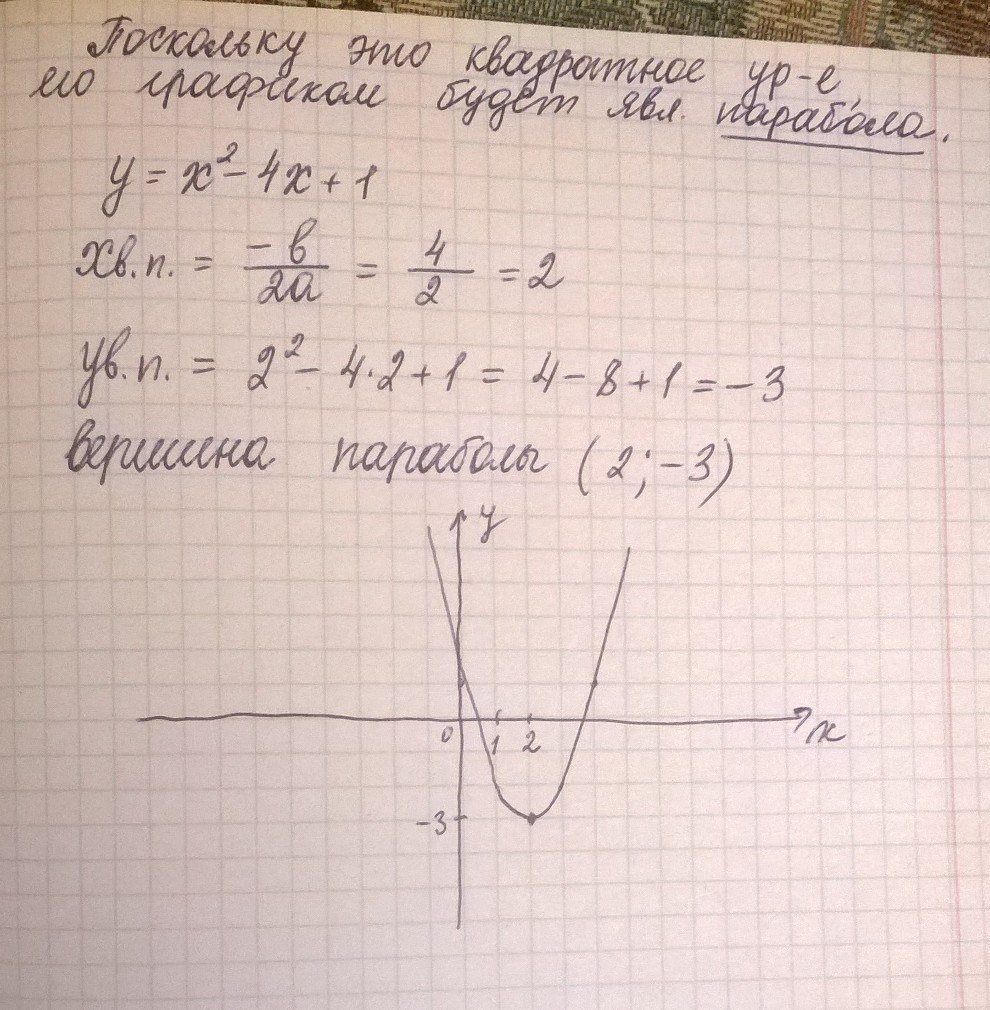 Поскольку это квадратное ур-е,
его графиком будет явл. парабола.
y = x² - 4x + 1
Xв.п. = -b/2a = 4/2 = 2
Yв.п. = 2² - 4·2 + 1 = 4 - 8 + 1 = -3
вершина параболы (2; -3)
y
0 1 2 x
-3